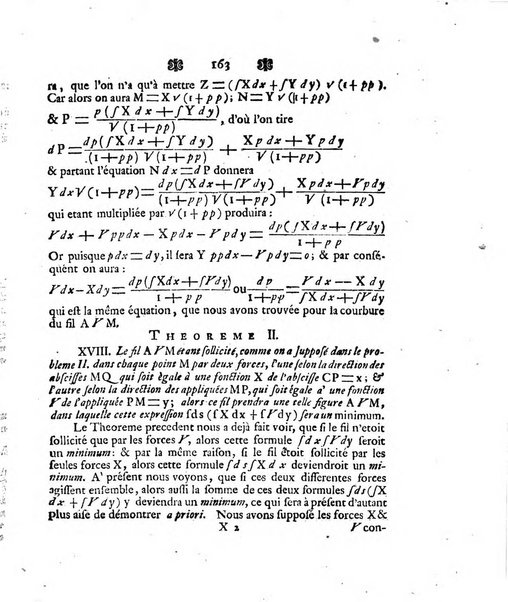 163
ra, que l'on n'a qu'à mettre Z = (∫X dx + ∫Y dy) √(1+pp).
Car alors on aura M = X √(1+pp); N = Y √(1+pp)
& P = p(∫X dx + ∫Y dy) / √(1+pp), d'où l'on tire
dP = dp(∫X dx + ∫Y dy) / (1+pp) √(1+pp) + X p dx + Y p dy / √(1+pp)
& partant l'équation N dx = d P donnera
Y dx √(1+pp) = dp(∫X dx + ∫Y dy) / (1+pp) √(1+pp) + X p dx + Y p dy / √(1+pp)
qui etant multipliée par √(1+pp) produira :
Y dx + Y pp dx — X p dx — Y p dy = dp(∫X dx + ∫Y dy) / 1+pp
Or puisque p dx = dy, il sera Y pp dx — Y p dy = o; & par consé-
quent on aura :
Y dx — X dy = dp(∫X dx + ∫Y dy) / 1+pp ou dp / 1+pp = Y dx — X dy / ∫X dx + ∫Y dy
qui est la même équation, que nous avons trouvée pour la courbure
du fil A Y M.
THEOREME II.
XVIII. Le fil A Y M étant sollicité, comme on a supposé dans le pro-
bleme II. dans chaque point M par deux forces, l'une selon la direction des
abscisses MQ, qui soit égale à une fonction X de l'abscisse CP = x; &
l'autre selon la direction des appliquées MP, qui soit égale à une fonction
Y de l'appliquée PM = y; alors ce fil prendra une telle figure A Y M,
dans laquelle cette expression ∫ds (∫X dx + ∫Y dy) sera un minimum.
Le Theoreme precedent nous a déjà fait voir, que si le fil n'etoit
sollicité que par les forces Y, alors cette formule ∫ds∫Y dy seroit
un minimum: & par la même raison, si le fil étoit sollicité par les
seules forces X, alors cette formule ∫ds∫X dx deviendroit un mi-
nimum. A présent nous voyons, que si ces deux différentes forces
agissent ensemble, alors aussi la somme de ces deux formules ∫ds(∫X
dx + ∫Y dy) deviendra un minimum, ce qui sera à présent d'autant
plus aisé de démontrer a priori. Nous avons supposé les forces X &
X 2
Y con-